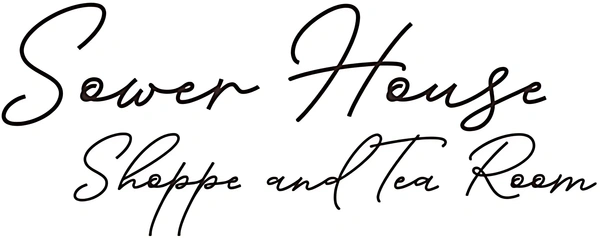 Sower House
Shoppe and Tea Room